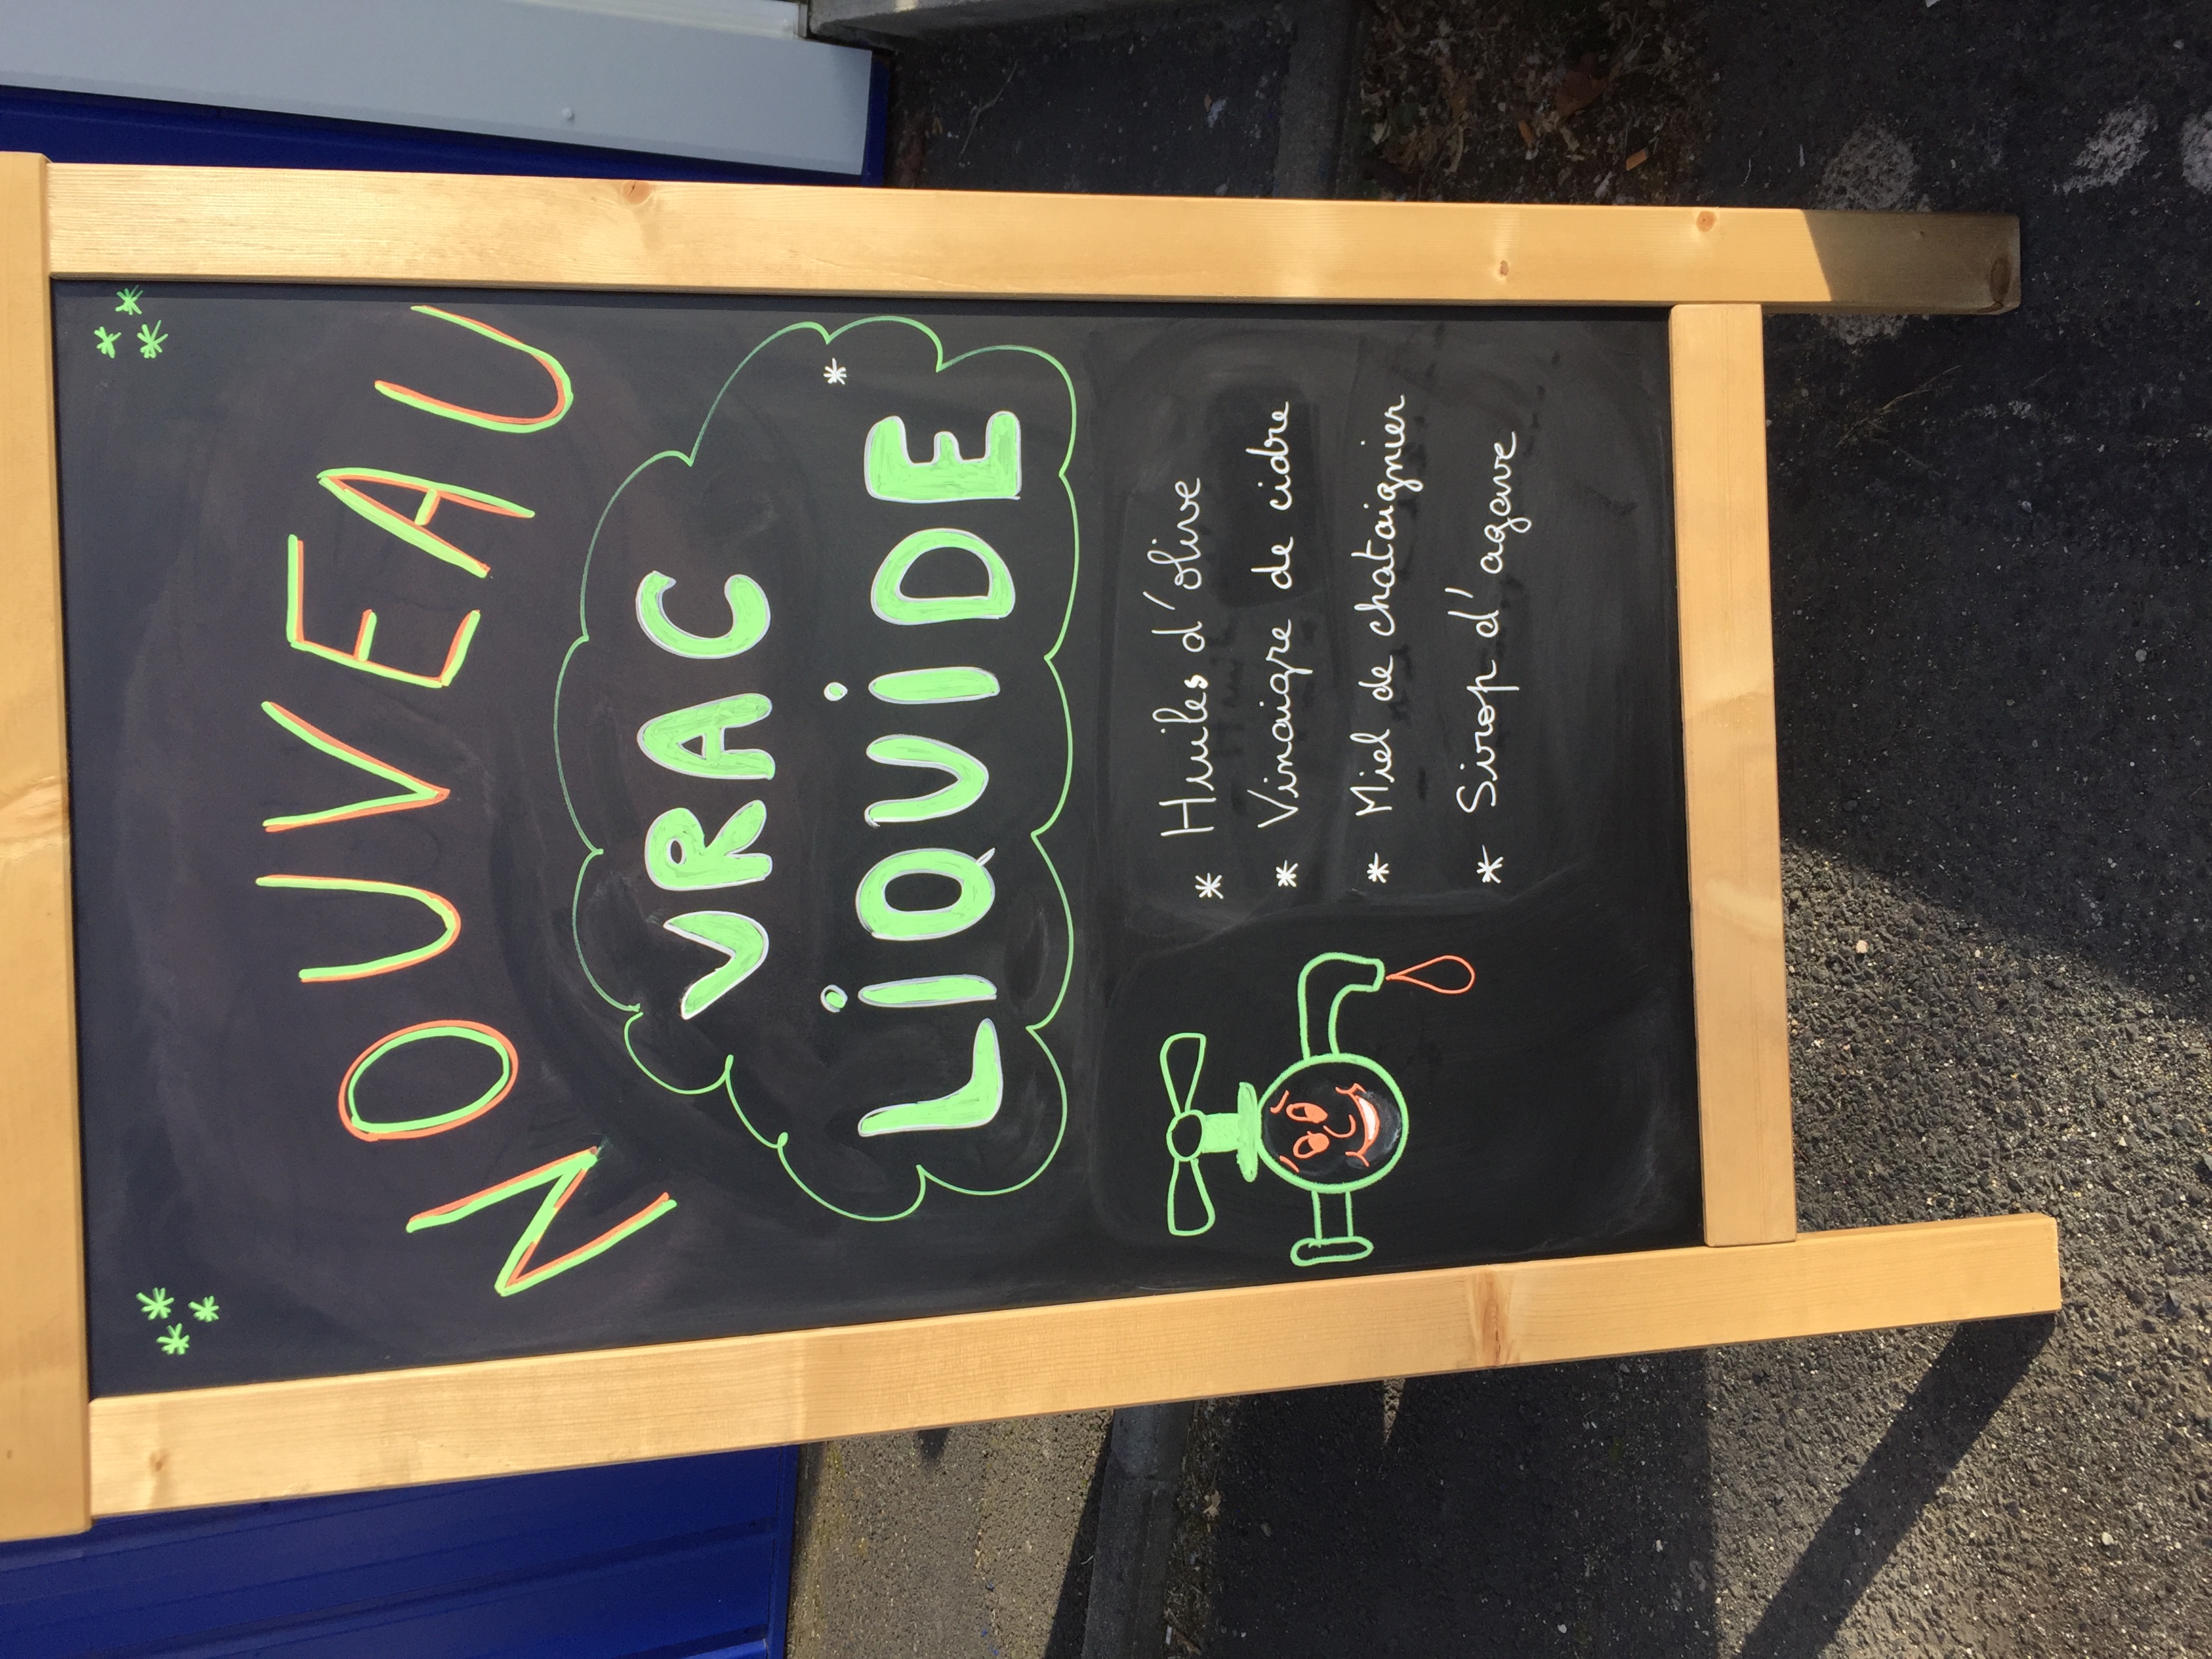 NOUVEAU
VRAC
LIQUIDE*
* Huiles d'olive
* Vinaigre de cidre
* Miel de chataignier
* Sirop d'agave